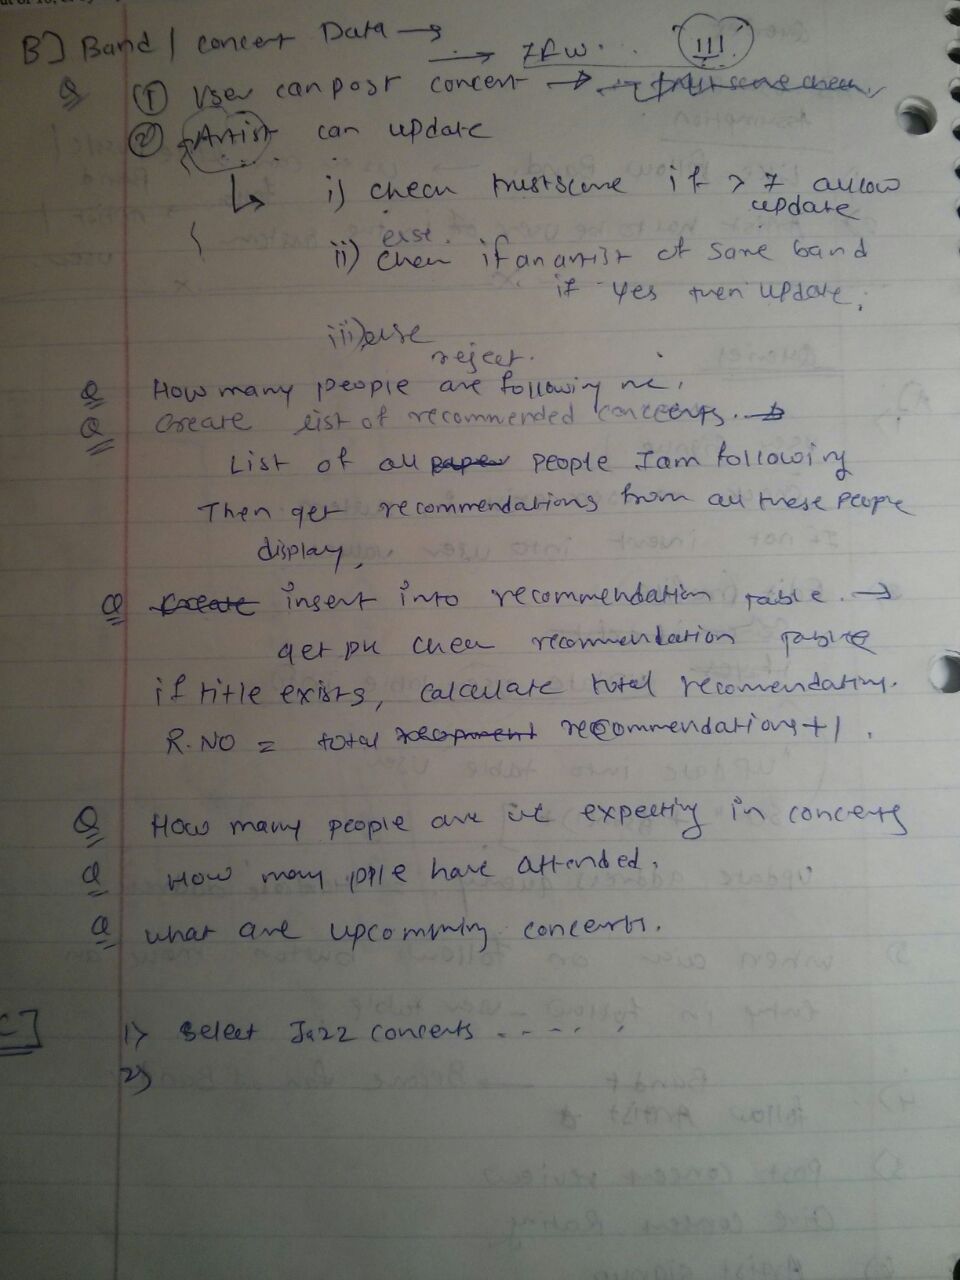 B] Band / concert Data →
→ 7 F W . . . III
Q (1) User can post concert → → trustscore check
(2) Artist can update
i) check trustscore if > 7 allow
update
else
ii) check if an artist of same band
if yes then update.
iii) else
reject.
Q How many people are following me.
Q Create list of recommended concerts. →
List of all people I am following
Then get recommendations from all these people
display.
Q Create insert into recommendation table. →
get pk check recommendation table
if title exists, calculate total recomendation.
R.NO = total recommendations +1.
Q How many people are expecting in concerts
Q How many pple have attended.
Q what are upcomming concerts.
C]
1) Select Jazz concerts - - - -
2)